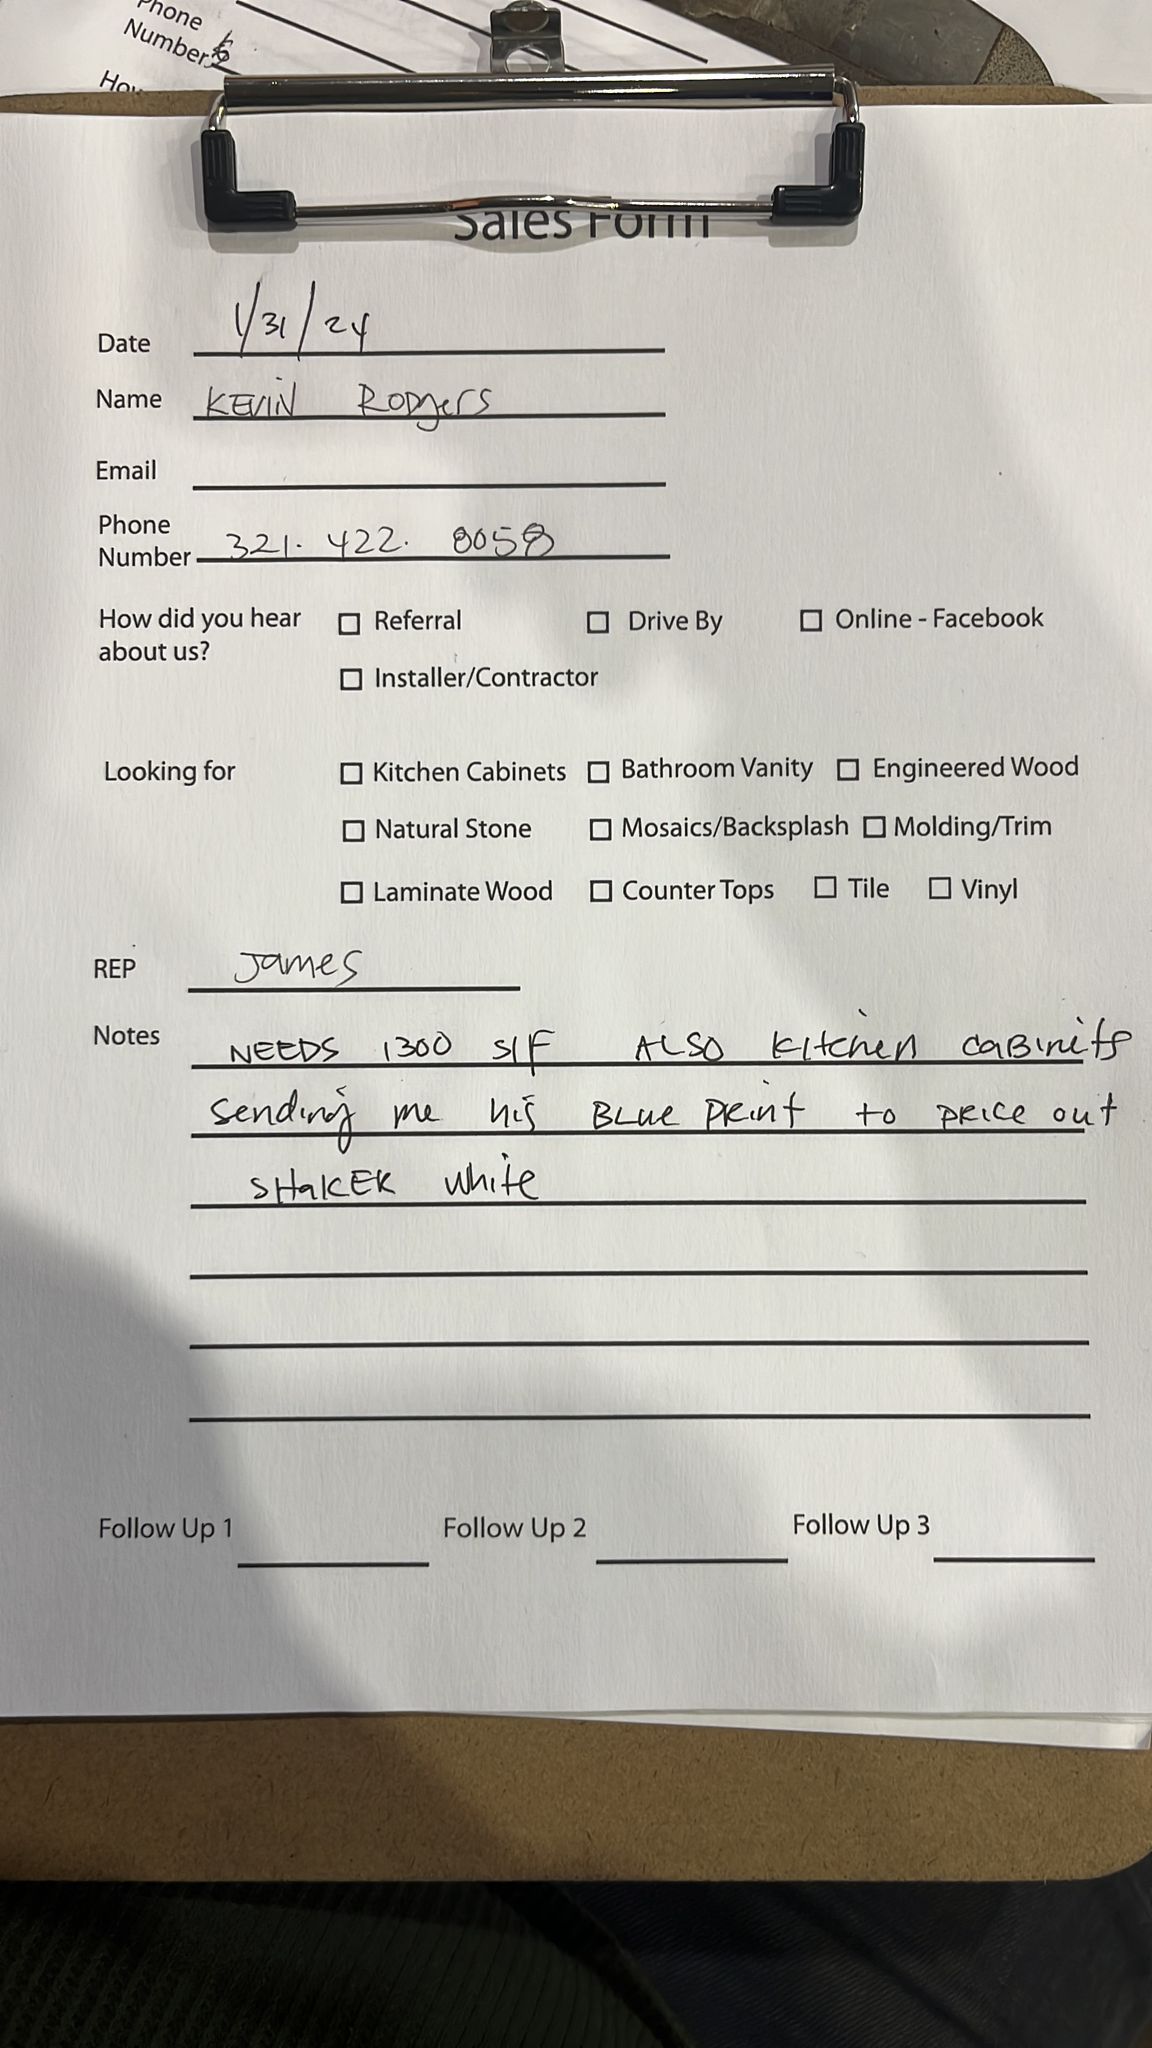 Phone
Number
Sales Form
Date 1/31/24
Name KEVIN RODgerS
Email
Phone
Number 321. 422. 8058
How did you hear
about us?
☐ Referral ☐ Drive By ☐ Online - Facebook
☐ Installer/Contractor
Looking for ☐ Kitchen Cabinets ☐ Bathroom Vanity ☐ Engineered Wood
☐ Natural Stone ☐ Mosaics/Backsplash ☐ Molding/Trim
☐ Laminate Wood ☐ Counter Tops ☐ Tile ☐ Vinyl
REP James
Notes NEEDS 1300 S/F ALSO Kitchen caBinits
Sending me his BLue Print to PRICE out
SHaKER white
Follow Up 1 Follow Up 2 Follow Up 3